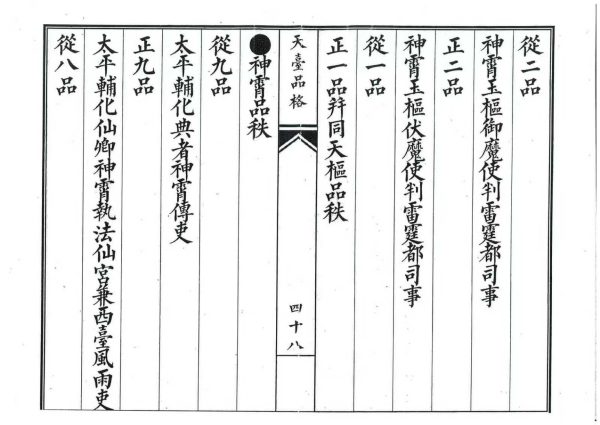 從二品
神霄玉樞御魔使判雷霆都司事
正二品
神霄玉樞伏魔使判雷霆都司事
從一品
正一品并同天樞品秩
天臺品格
四十八
神霄品秩
從九品
太平輔化典者神霄傳吏
正九品
太平輔化仙卿神霄執法仙官兼西臺風雨吏
從八品